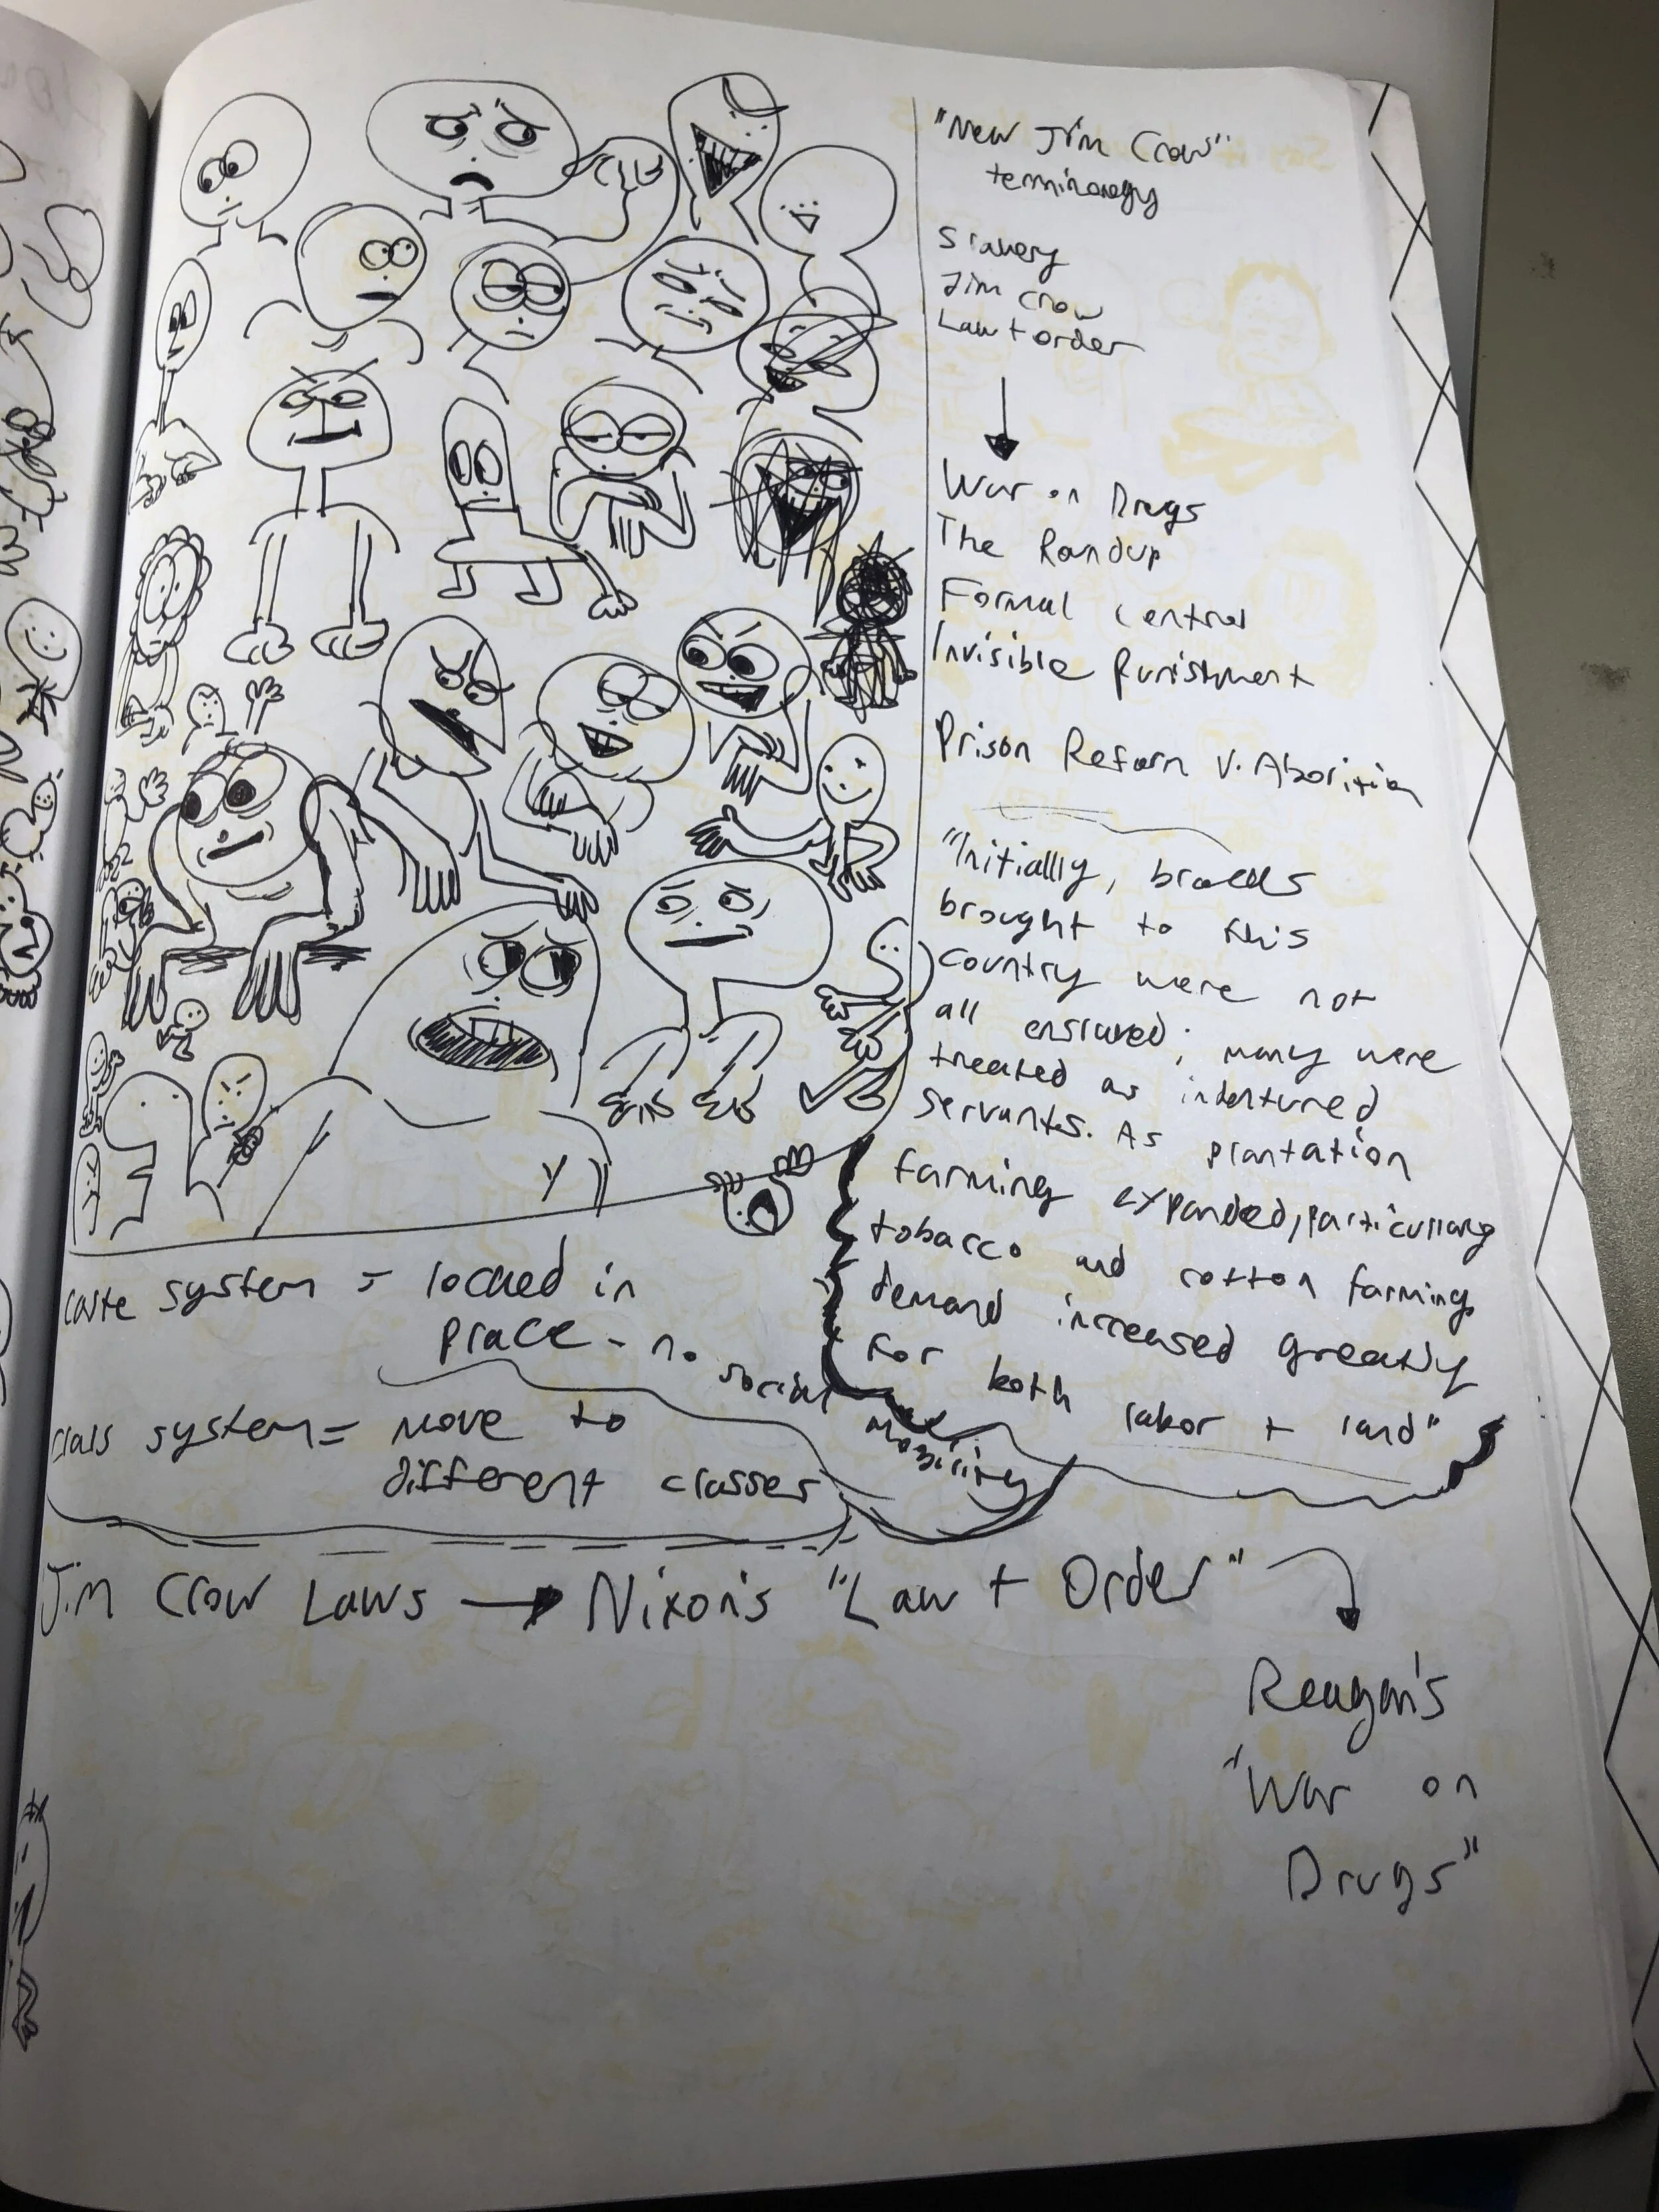 "New Jim Crow"
terminology
Slavery
Jim Crow
Law + order
War on Drugs
The Roundup
Formal Control
Invisible Punishment
Prison Reform v. Abolition
"Initially, blacks
brought to this
country were not
all enslaved; many were
treated as indentured
servants. As plantation
farming expanded, particularly
tobacco and cotton farming,
demand increased greatly
for both labor + land"
caste system = locked in
place - no social mobility
class system = move to
different classes
Jim Crow Laws → Nixon's "Law + Order"
Reagan's
"War on
Drugs"